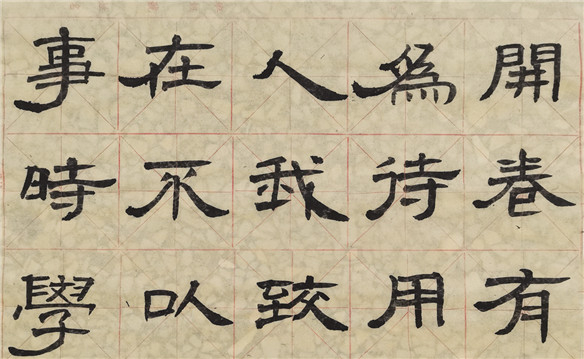 開卷有
爲待用
人我致
在不以
事時學